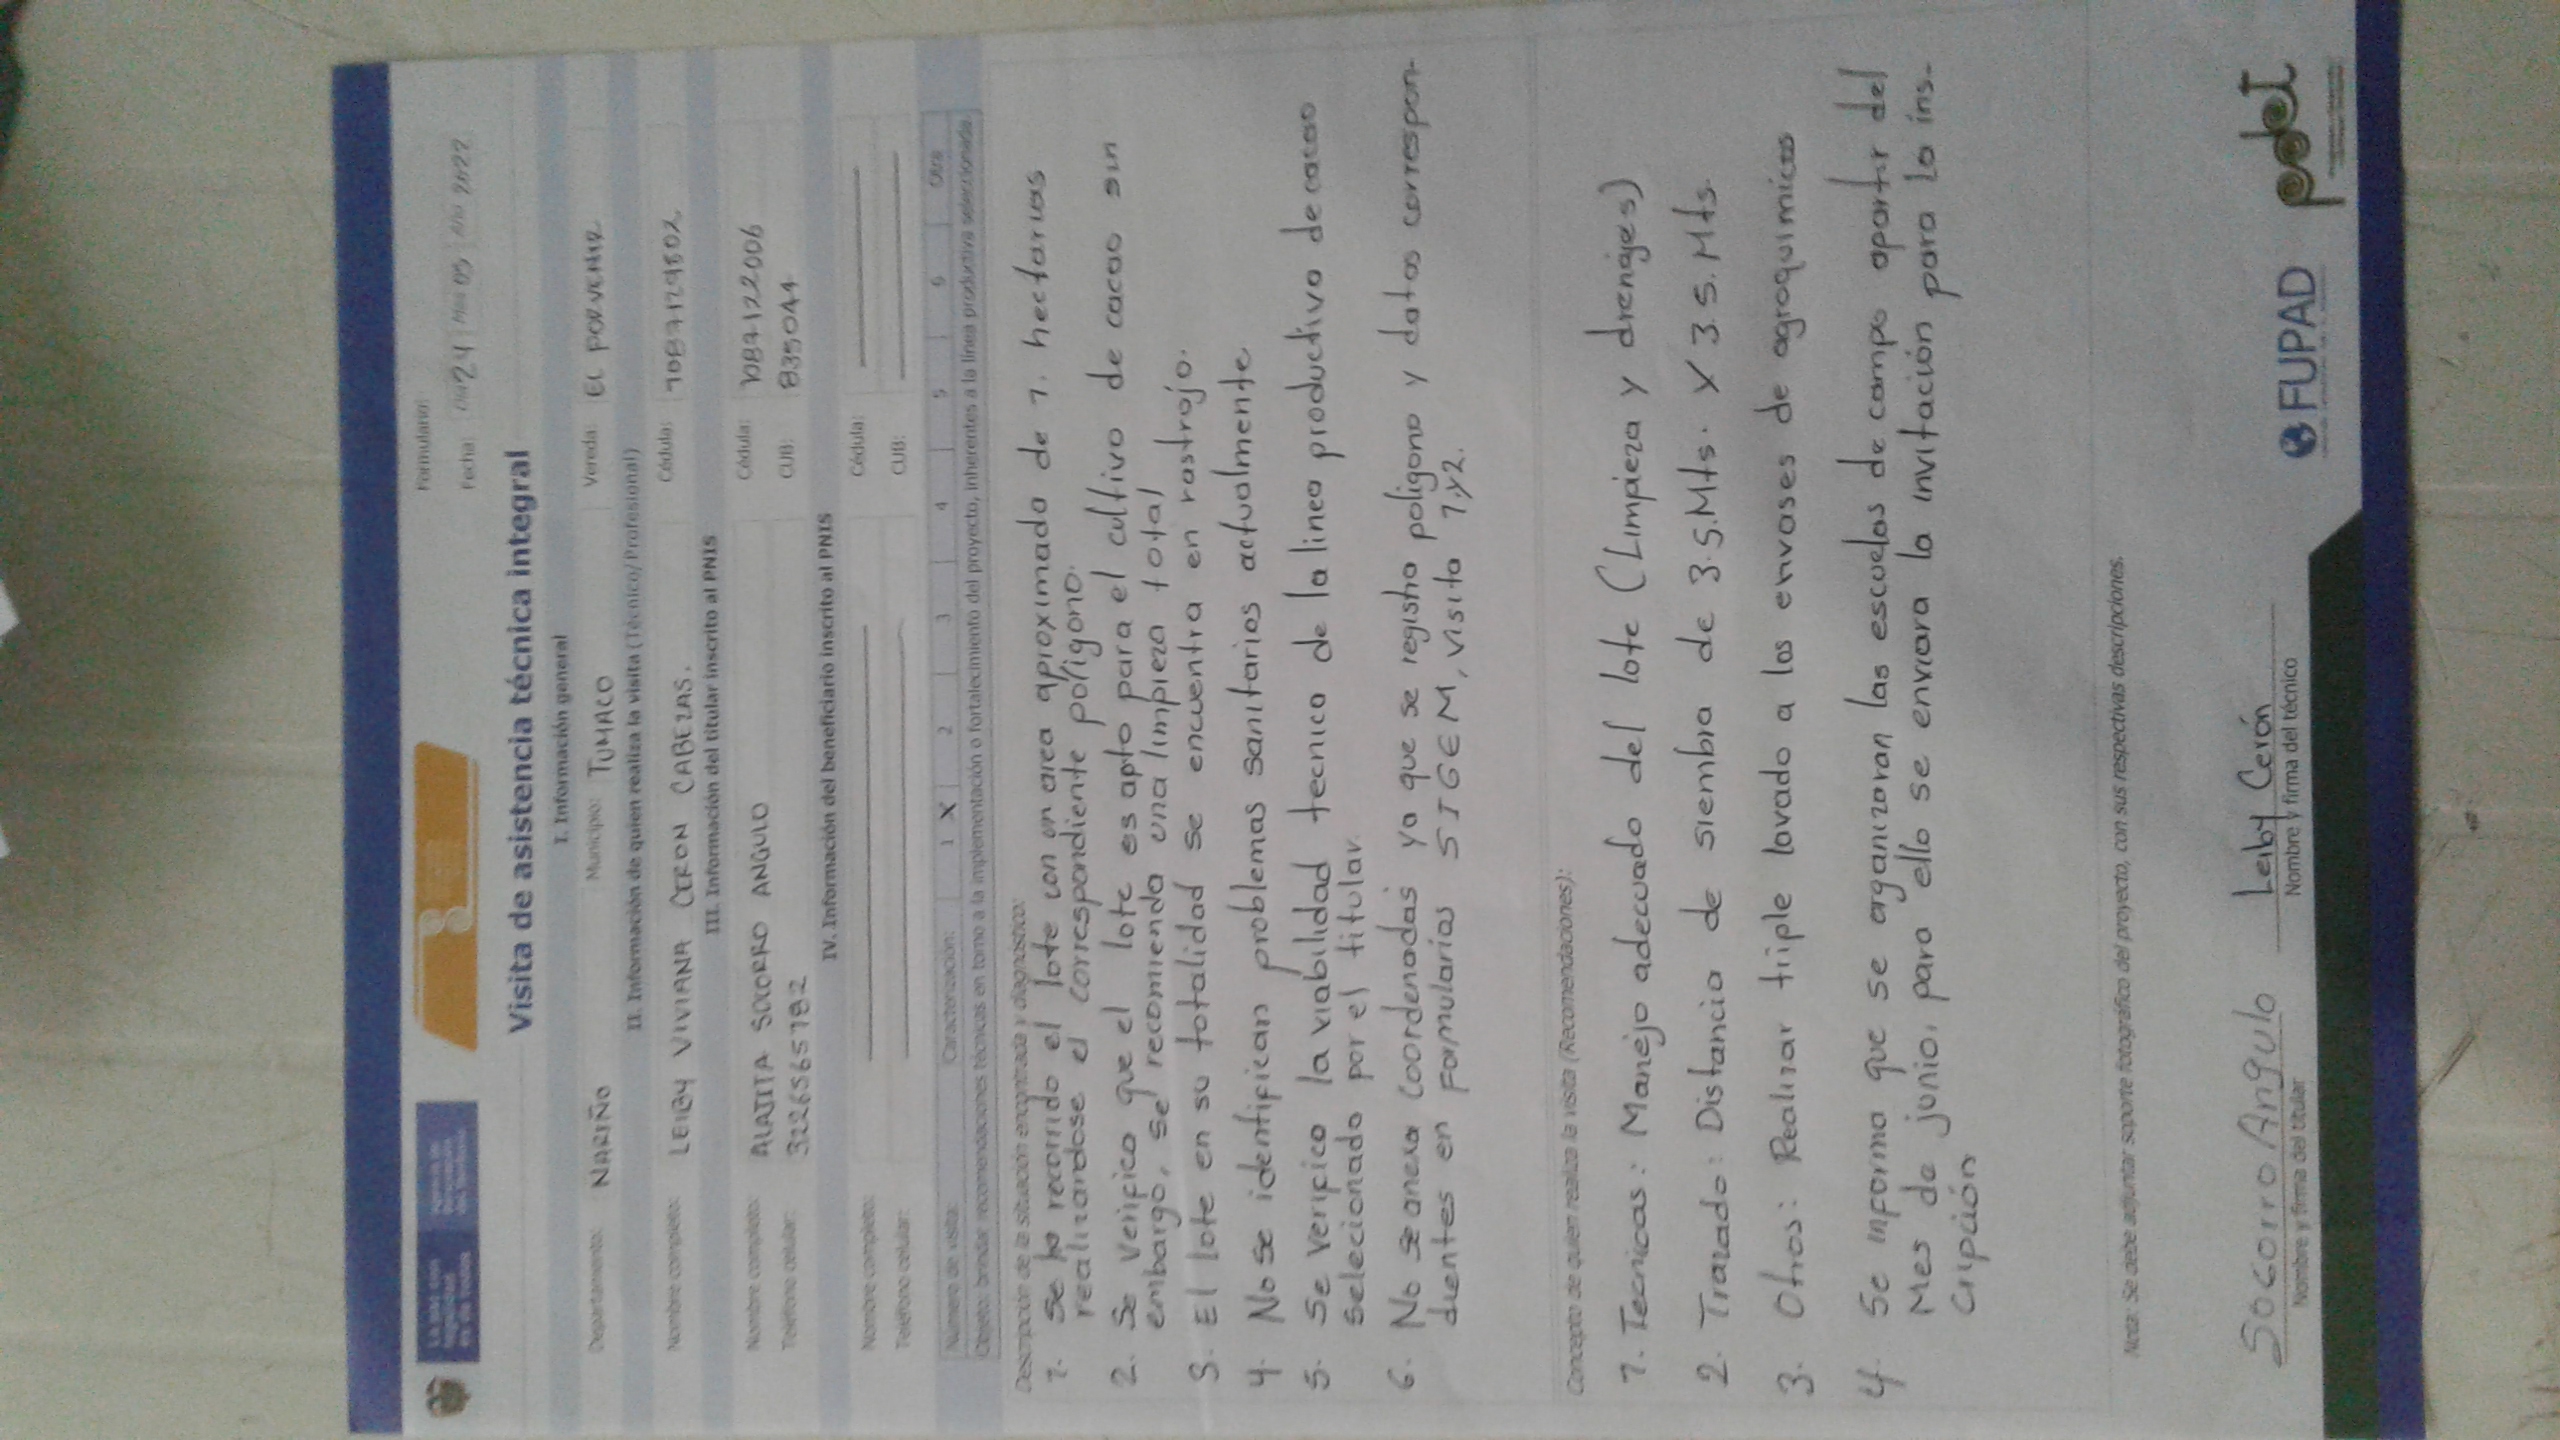 Formulario:
Fecha: Día 24 Mes 05 Año 2022
Visita de asistencia técnica integral
I. Información general
Departamento: NARIÑO Municipio: TUMACO Vereda: EL PORVENIR
II. Información de quien realiza la visita (Técnico/Profesional)
Nombre completo: LEIBY VIVIANA CERON CABEZAS. Cédula: 1087129802
III. Información del titular inscrito al PNIS
Nombre completo: ALAJITA SOCORRO ANGULO Cédula: 1087122006
Teléfono celular: 3226565782 CUB: 835044
IV. Información del beneficiario inscrito al PNIS
Nombre completo: Cédula:
Teléfono celular: CUB:
Número de visita: Caracterización: 1 X 2 3 4 5 6 Otra
Objeto: brindar recomendaciones técnicas en torno a la implementación o fortalecimiento del proyecto, inherentes a la línea productiva seleccionada.
Descripción de la situación encontrada y diagnóstico:
1. se ha recorrido el lote con un area aproximado de 1. hectarias
realizandose el correspondiente polígono.
2. Se verifico que el lote es apto para el cultivo de cacao sin
embargo, se recomienda una limpieza total
3. El lote en su totalidad se encuentra en rastrojo.
4. No se identifican problemas sanitarios actualmente
5. Se verifico la viabilidad tecnico de la linea productivo de cacao
selecionado por el titular.
6. No se anexa coordenadas ya que se registro poligono y datos correspon-
dientes en formularios SIGEM, visita 1 y 2.
Concepto de quien realiza la visita (Recomendaciones):
1. Tecnicas: Manejo adecuado del lote (Limpieza y drenajes)
2. Trazado: Distancia de siembra de 3.5.Mts. X 3.5.Mts.
3. Otros: Realizar triple lavado a los envases de agroquimicos
4. Se informo que se organizaran las escuelas de campo apartir del
Mes de junio, para ello se enviara la invitación para la ins-
cripción
Nota: Se debe adjuntar soporte fotográfico del proyecto, con sus respectivas descripciones.
Socorro Angulo Leiby Cerón
Nombre y firma del titular Nombre y firma del técnico
FUPAD pdet